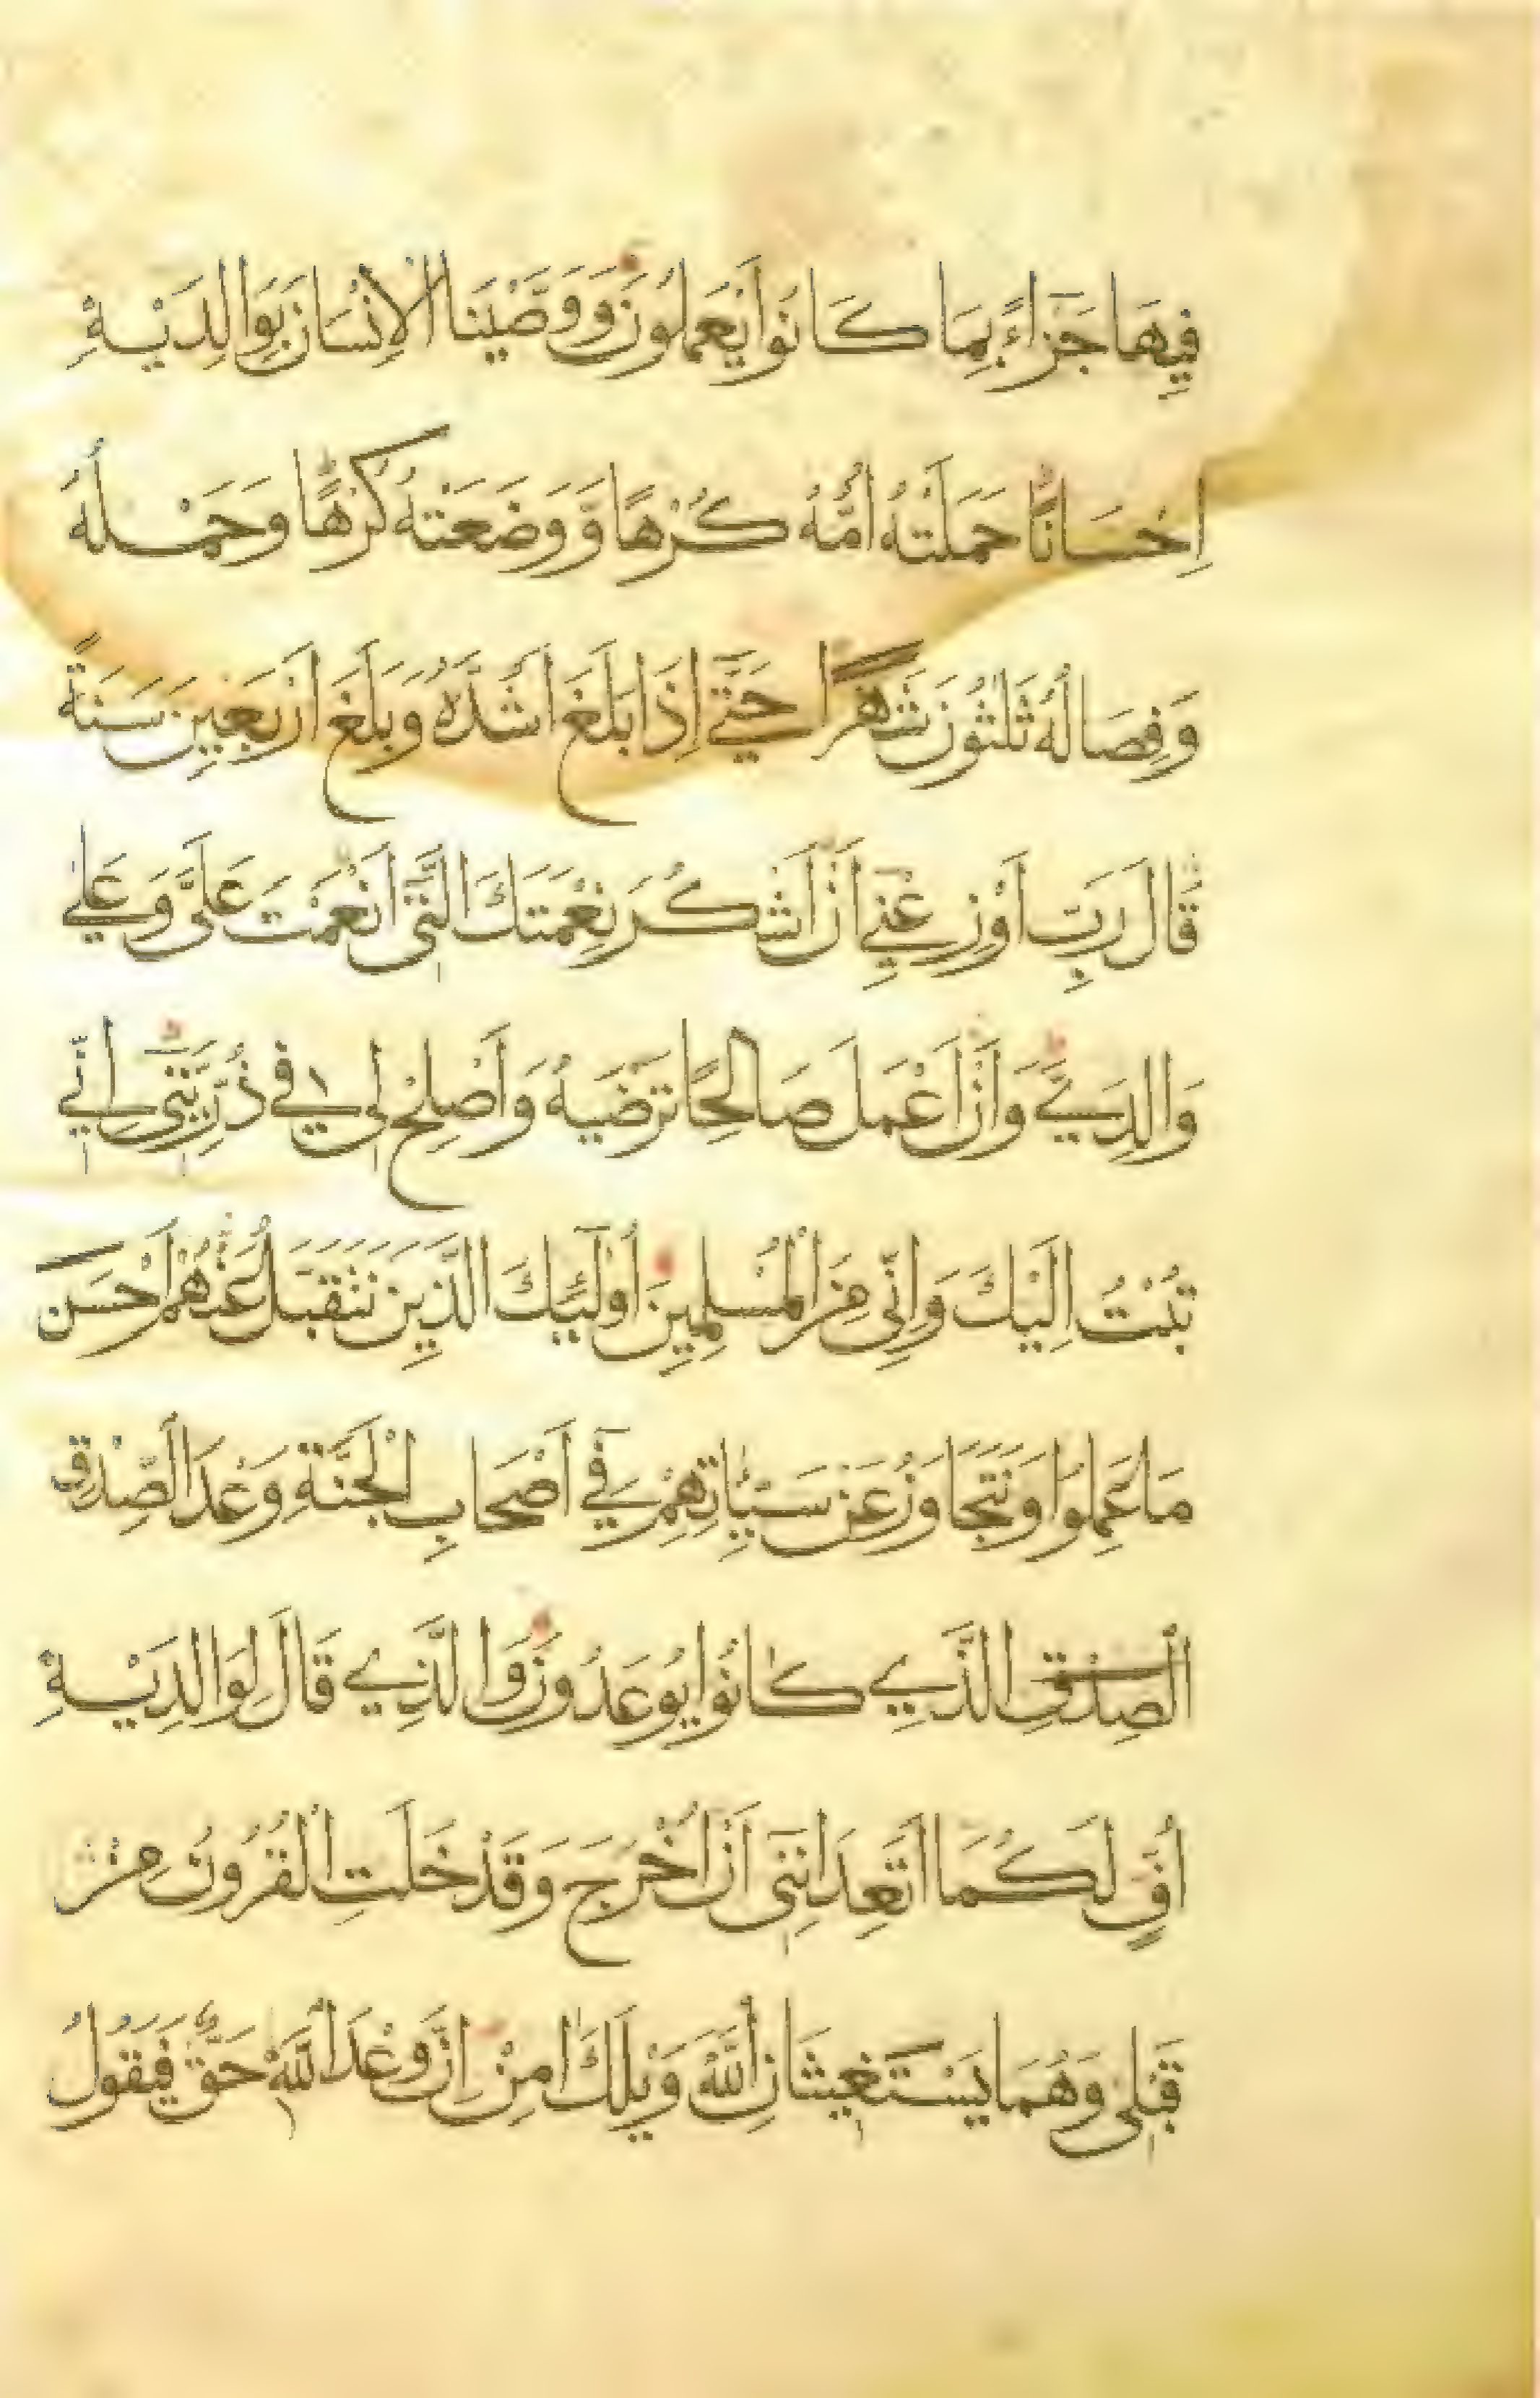 فِيهَا جَزَآءً بِمَا كَانُوا يَعْمَلُونَ وَوَصَّيْنَا الْاِنْسَانَ بِوَالِدَيْهِ
اِحْسَانًا حَمَلَتْهُ اُمُّهُ كُرْهًا وَّوَضَعَتْهُ كُرْهًا وَحَمْلُهُ
وَفِصَالُهُ ثَلٰثُونَ شَهْرًا حَتَّٓي اِذَا بَلَغَ اَشُدَّهُ وَبَلَغَ اَرْبَعِينَ سَنَةً
قَالَ رَبِّ اَوْزِعْنِٓي اَنْ اَشْكُرَ نِعْمَتَكَ الَّتِٓي اَنْعَمْتَ عَلَيَّ وَعَلٰي
وَالِدَيَّ وَاَنْ اَعْمَلَ صَالِحًا تَرْضٰيهُ وَاَصْلِحْ لِي فِي ذُرِّيَّتِٓي اِنِّي
تُبْتُ اِلَيْكَ وَاِنِّي مِنَ الْمُسْلِمِينَ اُولٰٓئِكَ الَّذِينَ نَتَقَبَّلُ عَنْهُمْ اَحْسَنَ
مَا عَمِلُوا وَنَتَجَاوَزُ عَنْ سَيِّئَاتِهِمْ فِٓي اَصْحَابِ الْجَنَّةِ وَعْدَ الصِّدْقِ
الصِّدْقِ الَّذِي كَانُوا يُوعَدُونَ وَالَّذِي قَالَ لِوَالِدَيْهِ
اُفٍّ لَكُمَا اَتَعِدَانِنِٓي اَنْ اُخْرَجَ وَقَدْ خَلَتِ الْقُرُونُ مِنْ
قَبْلِي وَهُمَا يَسْتَغِيثَانِ اللّٰهَ وَيْلَكَ اٰمِنْ اِنَّ وَعْدَ اللّٰهِ حَقٌّ فَيَقُولُ